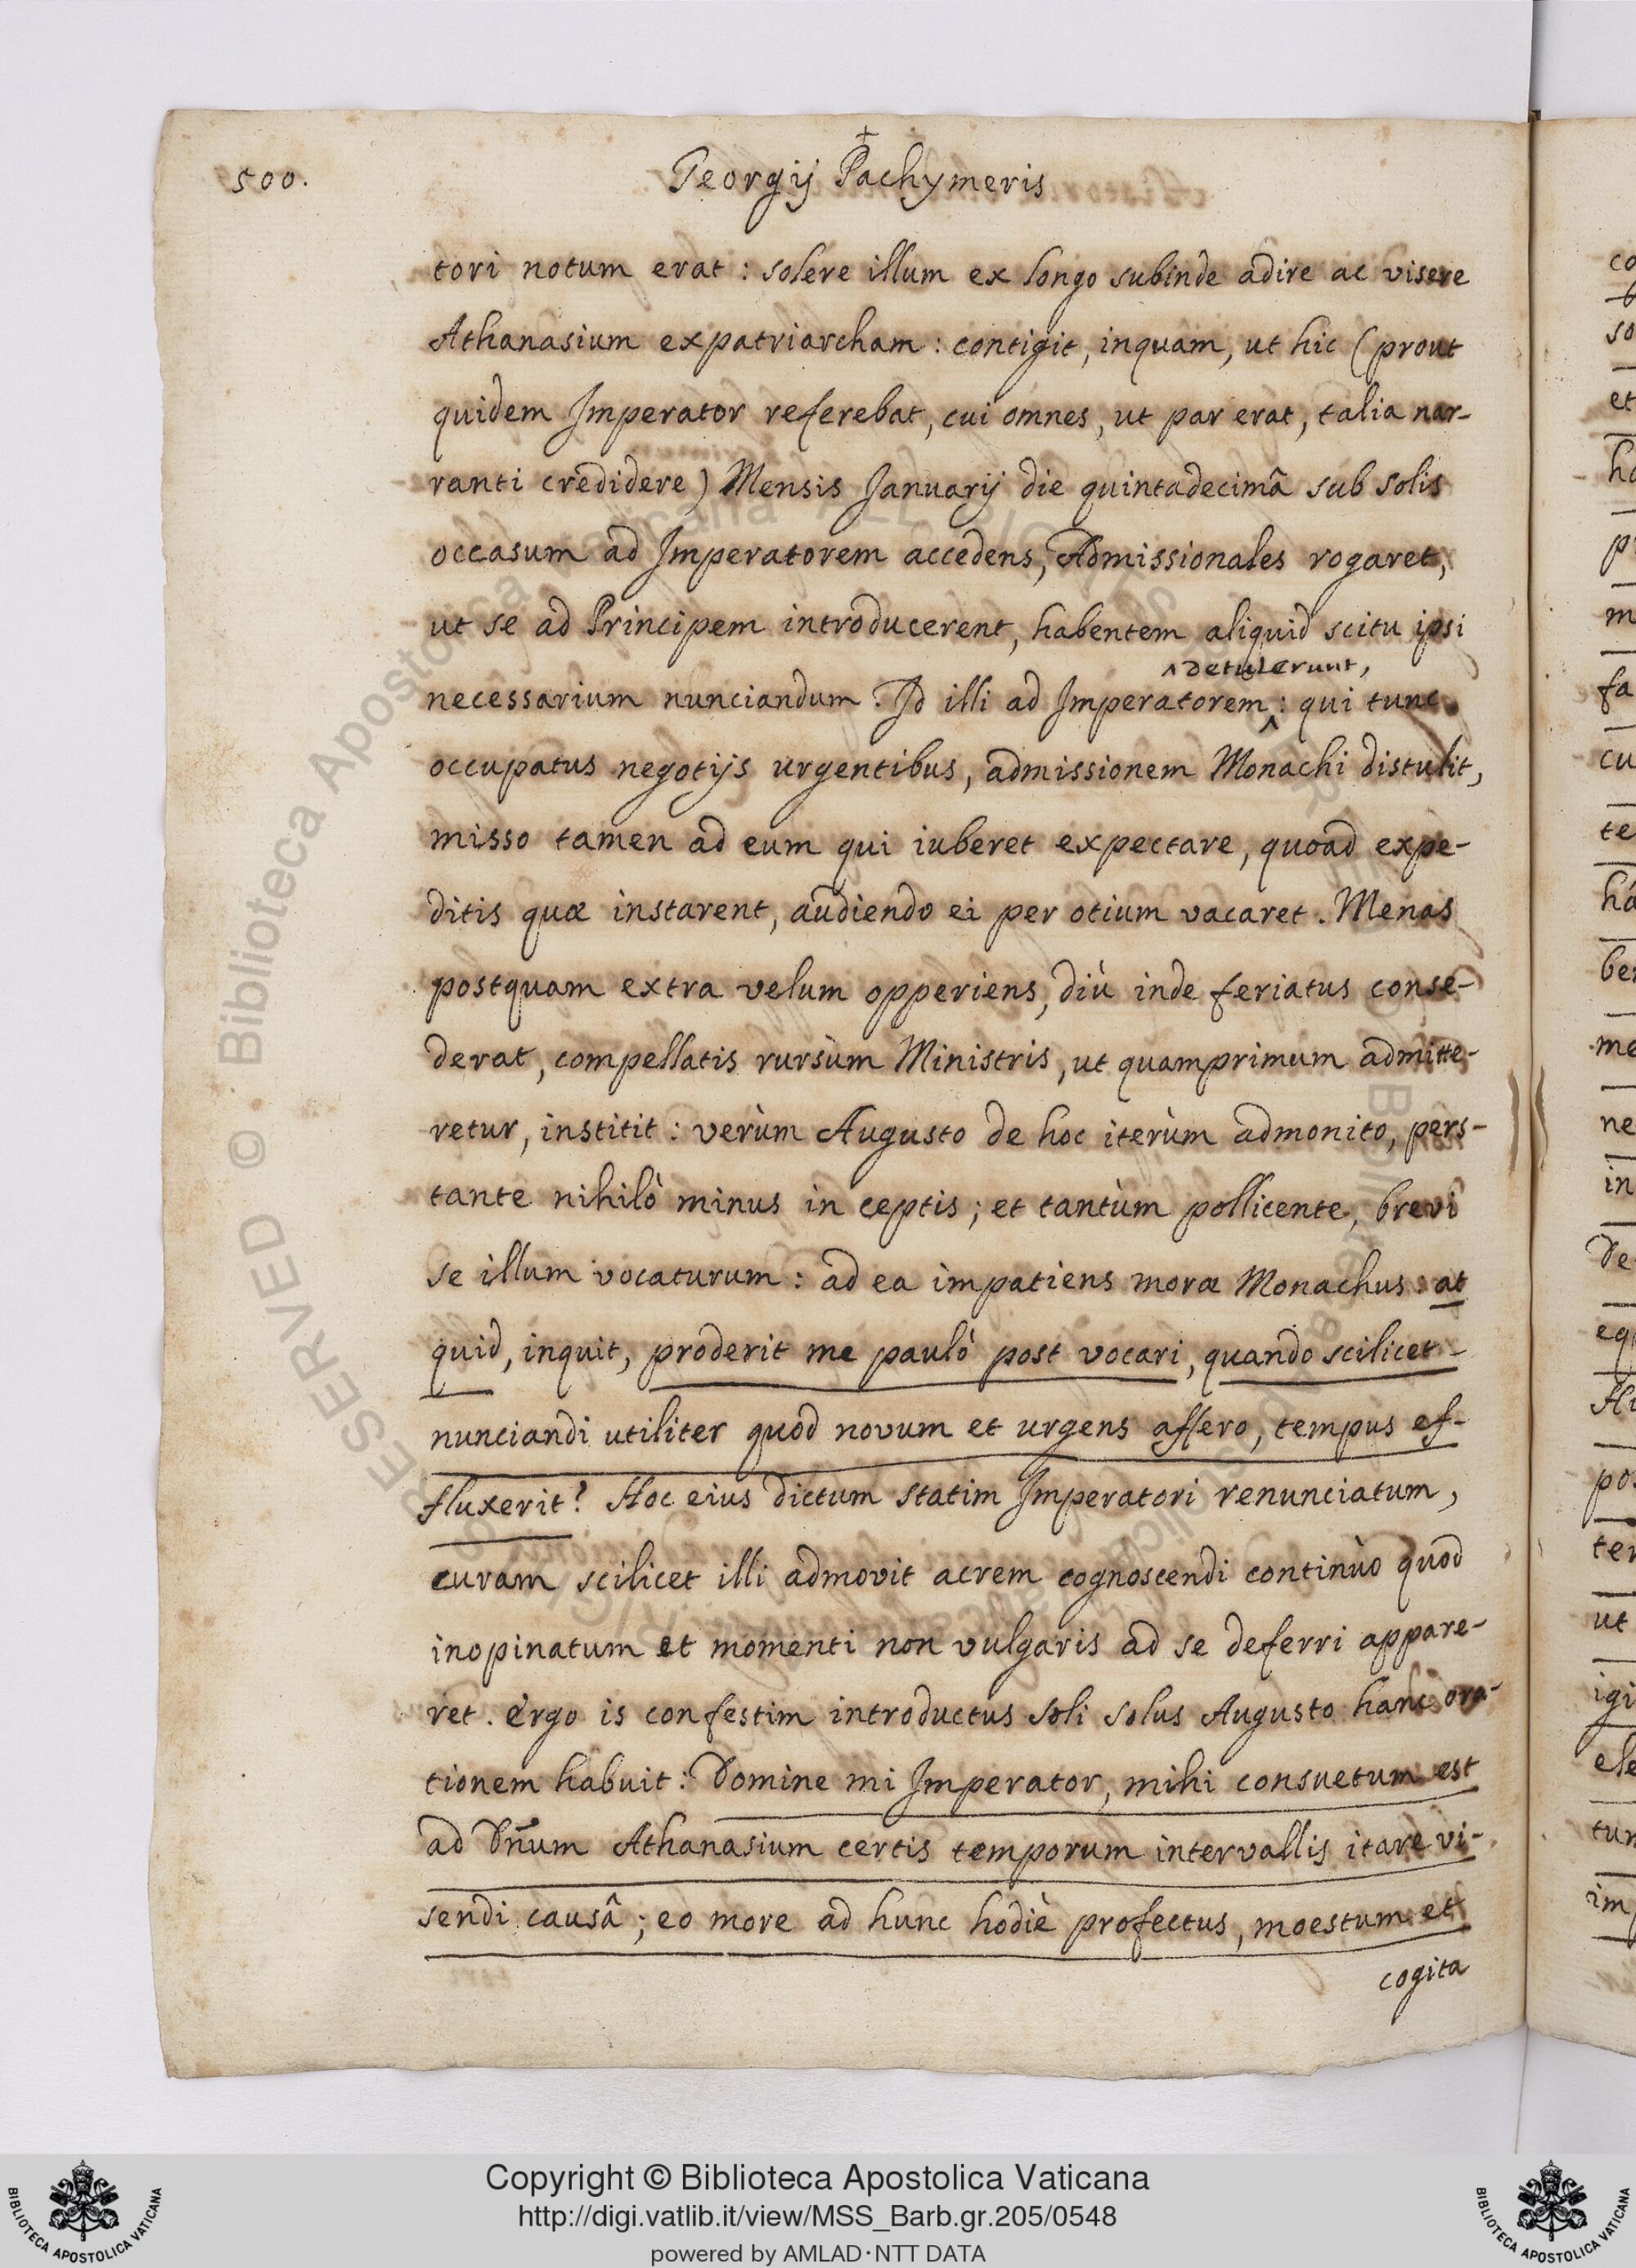 500.
+
Georgij Pachymeris
tori notum erat : solere illum ex longo subinde adire ac visere
Athanasium expatriarcham : contigit, inquam, ut hic (prout
quidem Imperator referebat, cui omnes, ut par erat, talia nar-
ranti credidere) Mensis Januarij die quintadecimâ sub solis
occasum ad Imperatorem accedens, Admissionales rogaret,
ut se ad Principem introducerent, habentem aliquid scitu ipsi
^ detulerunt,
necessarium nunciandum. Id illi ad Imperatorem ^ : qui tunc
occupatus negotijs urgentibus, admissionem Monachi distulit,
misso tamen ad eum qui iuberet expectare, quoad expe-
ditis quæ instarent, audiendo ei per otium vacaret. Menas
postquam extra velum opperiens, diù inde feriatus conse-
derat, compellatis rursùm Ministris, ut quamprimum admitte-
retur, institit : verùm Augusto de hoc iterùm admonito, pers-
tante nihilò minus in ceptis ; et tantùm pollicente, brevi
se illum vocaturum : ad ea impatiens moræ Monachus : at
quid, inquit, proderit me paulò post vocari, quando scilicet
nunciandi utiliter quod novum et urgens affero, tempus ef-
fluxerit? Hoc eius dictum statim Imperatori renunciatum,
curam scilicet illi admovit acrem cognoscendi continùo quod
inopinatum et momenti non vulgaris ad se deferri appare-
ret. ergo is confestim introductus soli solus Augusto hanc ora-
tionem habuit : Domine mi Imperator, mihi consuetum est
ad Dñum Athanasium certis temporum intervallis itare vi-
sendi causâ ; eo more ad hunc hodiè profectus, moestum et
cogita
Copyright © Biblioteca Apostolica Vaticana
http://digi.vatlib.it/view/MSS_Barb.gr.205/0548
powered by AMLAD·NTT DATA
BIBLIOTECA APOSTOLICA VATICANA
BIBLIOTECA APOSTOLICA VATICANA